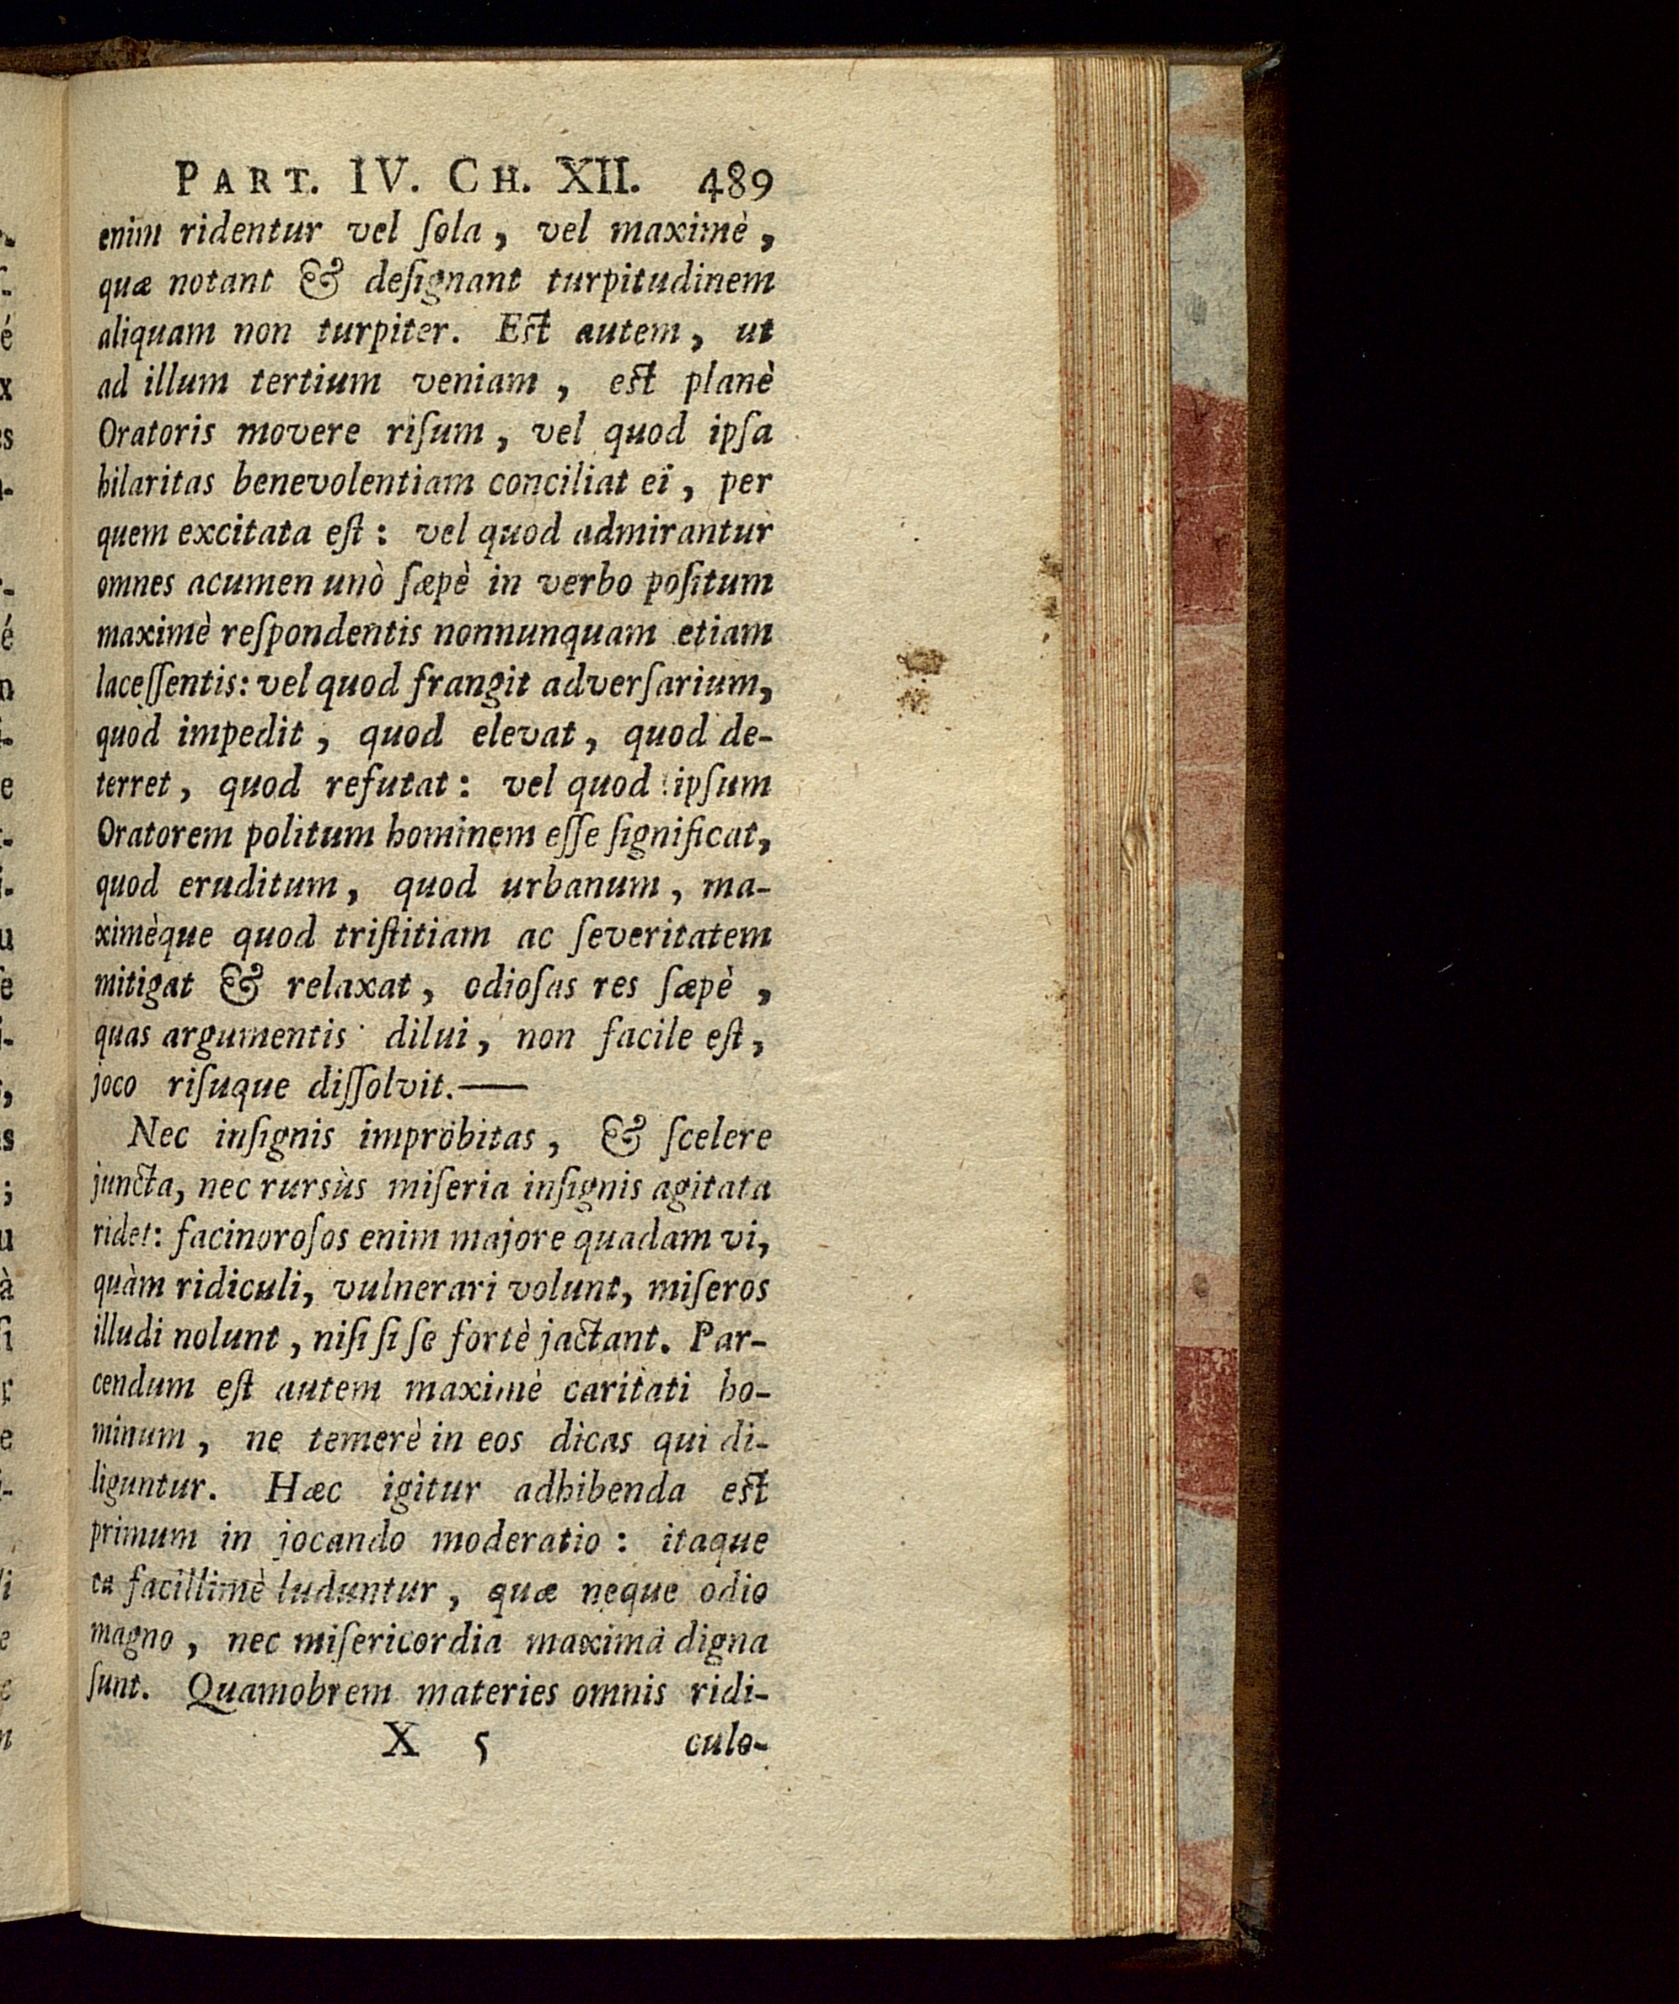 PART. IV. CH. XII. 489
enim ridentur vel ſola, vel maximè,
quæ notant & deſignant turpitudinem
aliquam non turpiter. Est autem, ut
ad illum tertium veniam, est planè
Oratoris movere riſum, vel quod ipſa
hilaritas benevolentiam conciliat ei, per
quem excitata eſt: vel quod admirantur
omnes acumen unò ſæpè in verbo poſitum
maximè reſpondentis nonnunquam etiam
laceſſentis: vel quod frangit adverſarium,
quod impedit, quod elevat, quod de-
terret, quod refutat: vel quod ipſum
Oratorem politum hominem eſſe ſignificat,
quod eruditum, quod urbanum, ma-
ximèque quod triſtitiam ac ſeveritatem
mitigat & relaxat, odioſas res ſæpè,
quas argumentis dilui, non facile eſt,
joco riſuque diſſolvit.—
Nec inſignis improbitas, & ſcelere
juncta, nec rursùs miſeria inſignis agitata
ridet: facinoroſos enim majore quadam vi,
quàm ridiculi, vulnerari volunt, miſeros
illudi nolunt, niſi ſi ſe fortè jactant. Par-
cendum eſt autem maximè caritati ho-
minum, ne temerè in eos dicas qui di-
liguntur. Hæc igitur adhibenda est
primum in jocando moderatio: itaque
ea facillimè luduntur, quæ neque odio
magno, nec miſericordia maxima digna
ſunt. Quamobrem materies omnis ridi-
X 5 culo-